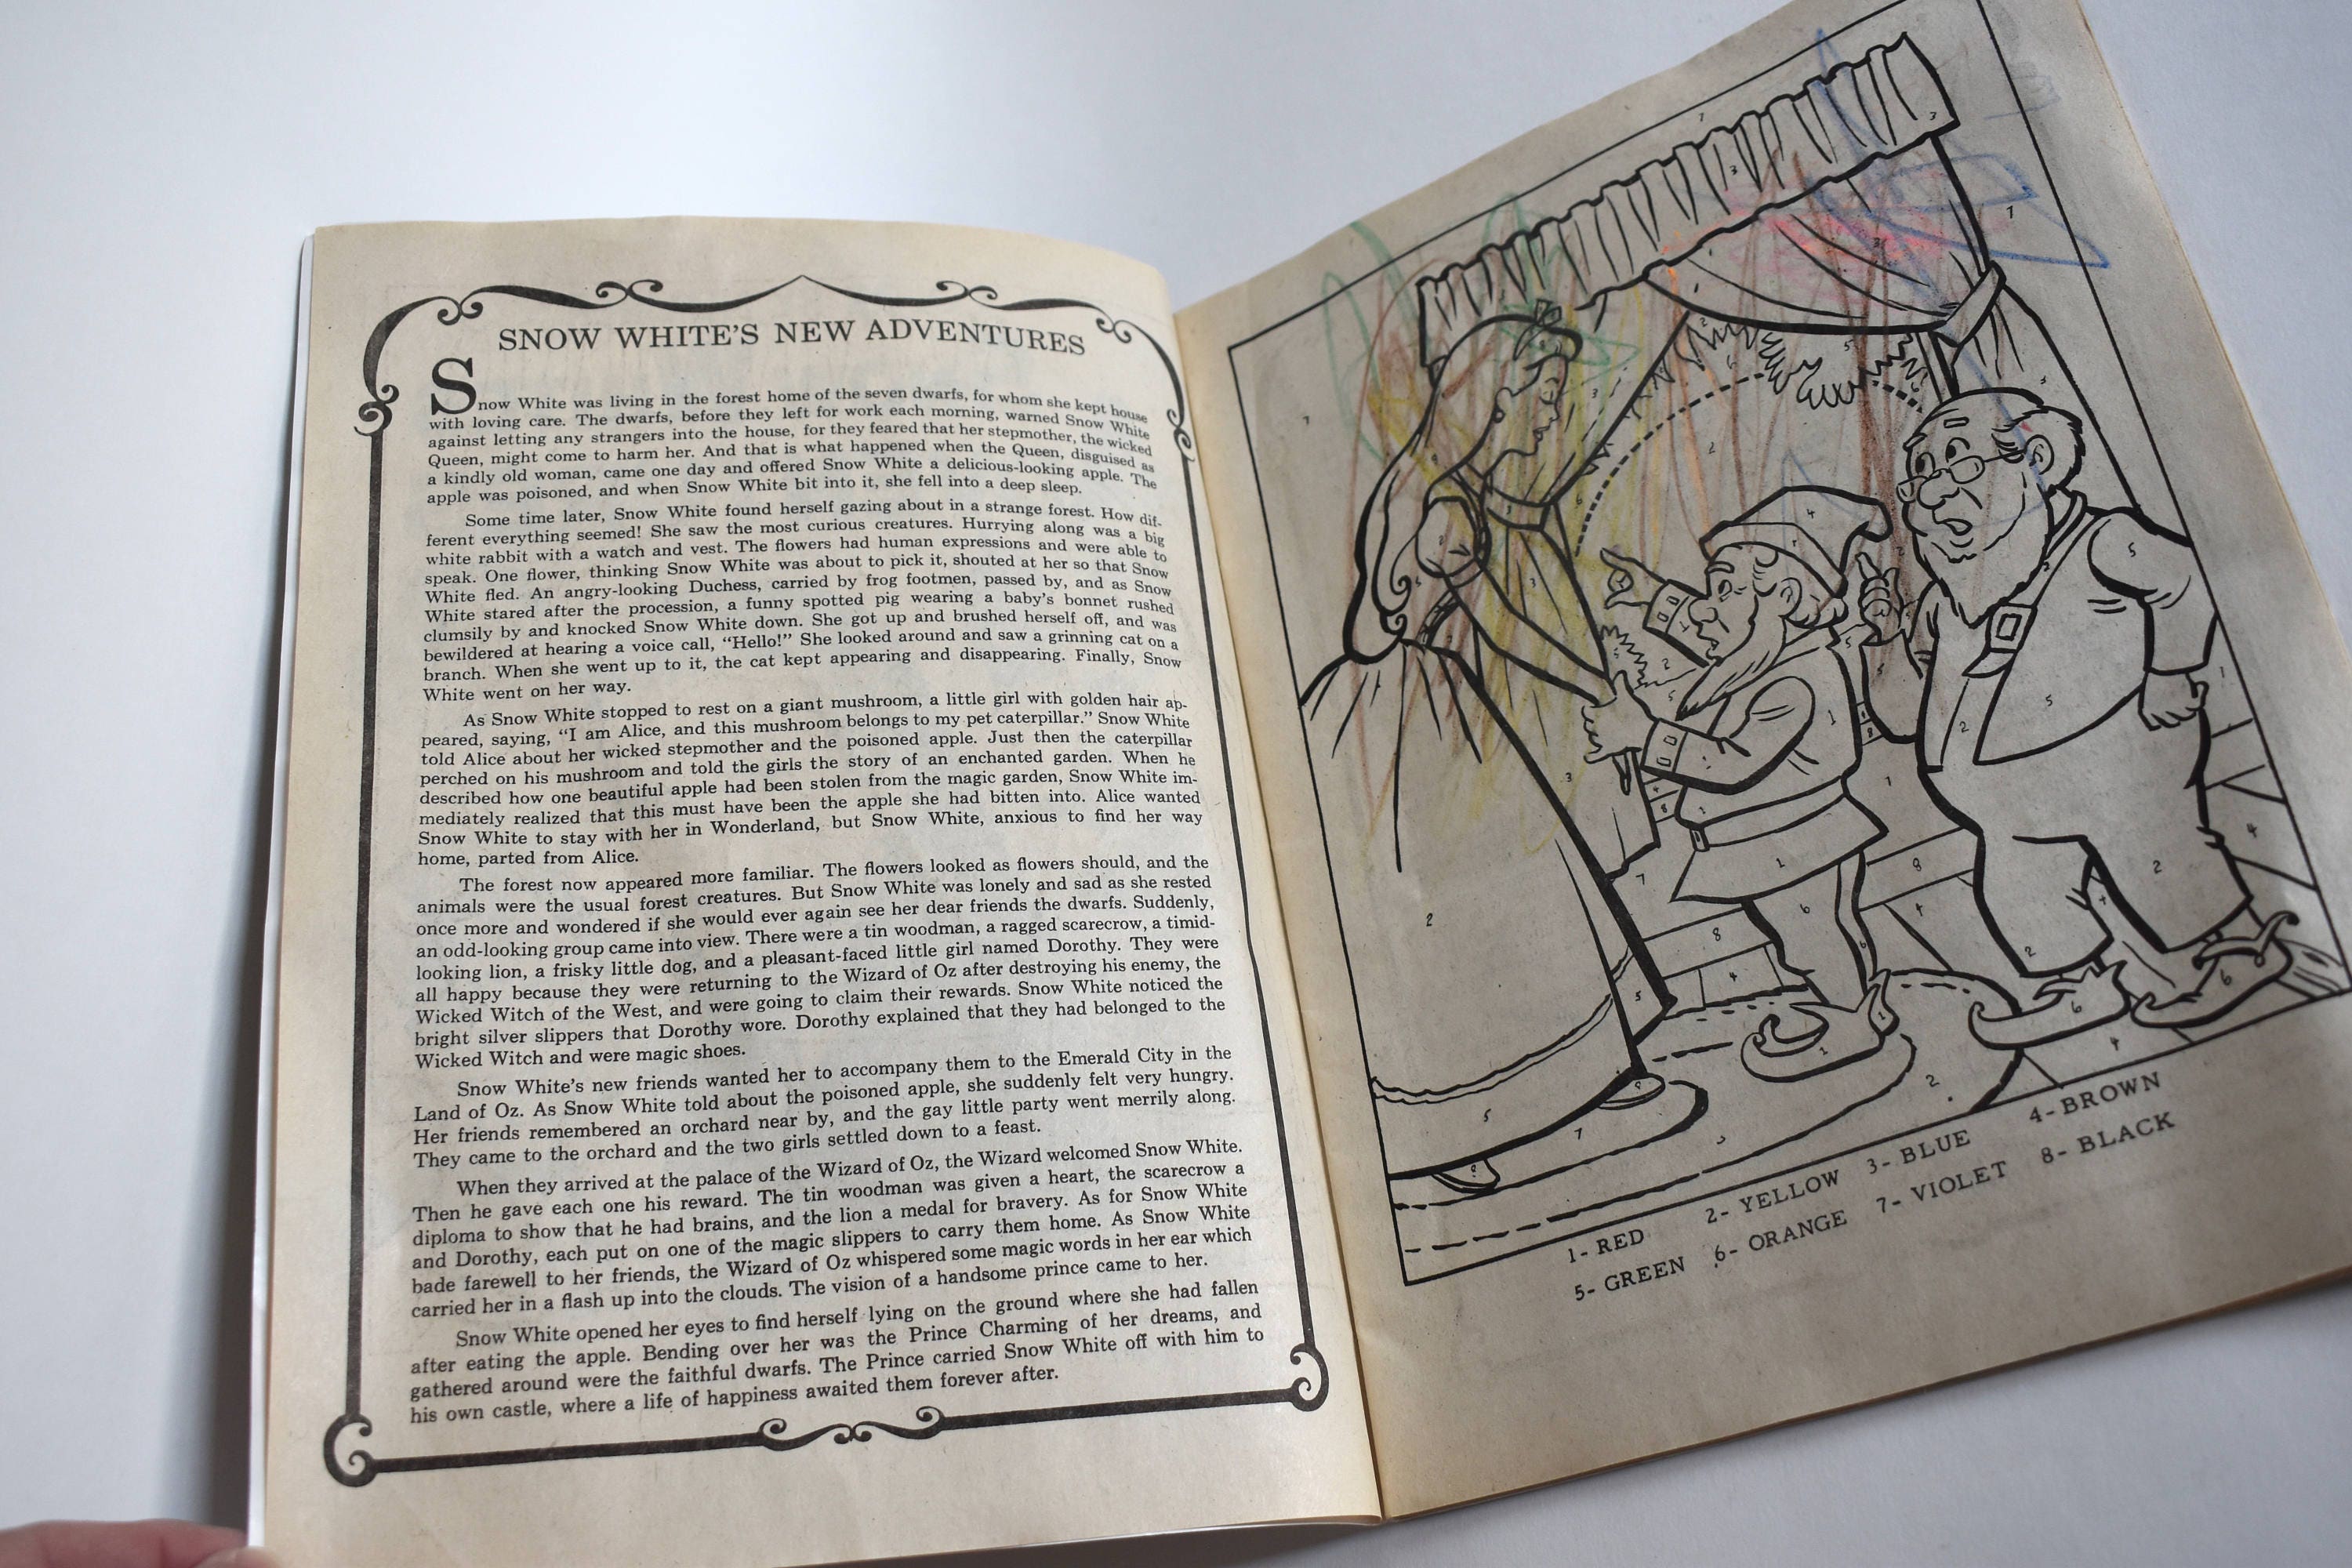 SNOW WHITE'S NEW ADVENTURES
Snow White was living in the forest home of the seven dwarfs, for whom she kept house
with loving care. The dwarfs, before they left for work each morning, warned Snow White
against letting any strangers into the house, for they feared that her stepmother, the wicked
Queen, might come to harm her. And that is what happened when the Queen, disguised as
a kindly old woman, came one day and offered Snow White a delicious-looking apple. The
apple was poisoned, and when Snow White bit into it, she fell into a deep sleep.
Some time later, Snow White found herself gazing about in a strange forest. How dif-
ferent everything seemed! She saw the most curious creatures. Hurrying along was a big
white rabbit with a watch and vest. The flowers had human expressions and were able to
speak. One flower, thinking Snow White was about to pick it, shouted at her so that Snow
White fled. An angry-looking Duchess, carried by frog footmen, passed by, and as Snow
White stared after the procession, a funny spotted pig wearing a baby's bonnet rushed
clumsily by and knocked Snow White down. She got up and brushed herself off, and was
bewildered at hearing a voice call, "Hello!" She looked around and saw a grinning cat on a
branch. When she went up to it, the cat kept appearing and disappearing. Finally, Snow
White went on her way.
As Snow White stopped to rest on a giant mushroom, a little girl with golden hair ap-
peared, saying, "I am Alice, and this mushroom belongs to my pet caterpillar." Snow White
told Alice about her wicked stepmother and the poisoned apple. Just then the caterpillar
perched on his mushroom and told the girls the story of an enchanted garden. When he
described how one beautiful apple had been stolen from the magic garden, Snow White im-
mediately realized that this must have been the apple she had bitten into. Alice wanted
Snow White to stay with her in Wonderland, but Snow White, anxious to find her way
home, parted from Alice.
The forest now appeared more familiar. The flowers looked as flowers should, and the
animals were the usual forest creatures. But Snow White was lonely and sad as she rested
once more and wondered if she would ever again see her dear friends the dwarfs. Suddenly,
an odd-looking group came into view. There were a tin woodman, a ragged scarecrow, a timid-
looking lion, a frisky little dog, and a pleasant-faced little girl named Dorothy. They were
all happy because they were returning to the Wizard of Oz after destroying his enemy, the
Wicked Witch of the West, and were going to claim their rewards. Snow White noticed the
bright silver slippers that Dorothy wore. Dorothy explained that they had belonged to the
Wicked Witch and were magic shoes.
Snow White's new friends wanted her to accompany them to the Emerald City in the
Land of Oz. As Snow White told about the poisoned apple, she suddenly felt very hungry.
Her friends remembered an orchard near by, and the gay little party went merrily along.
They came to the orchard and the two girls settled down to a feast.
When they arrived at the palace of the Wizard of Oz, the Wizard welcomed Snow White.
Then he gave each one his reward. The tin woodman was given a heart, the scarecrow a
diploma to show that he had brains, and the lion a medal for bravery. As for Snow White
and Dorothy, each put on one of the magic slippers to carry them home. As Snow White
bade farewell to her friends, the Wizard of Oz whispered some magic words in her ear which
carried her in a flash up into the clouds. The vision of a handsome prince came to her.
Snow White opened her eyes to find herself lying on the ground where she had fallen
after eating the apple. Bending over her was the Prince Charming of her dreams, and
gathered around were the faithful dwarfs. The Prince carried Snow White off with him to
his own castle, where a life of happiness awaited them forever after.
1- RED 2- YELLOW 3- BLUE 4- BROWN
5- GREEN 6- ORANGE 7- VIOLET 8- BLACK